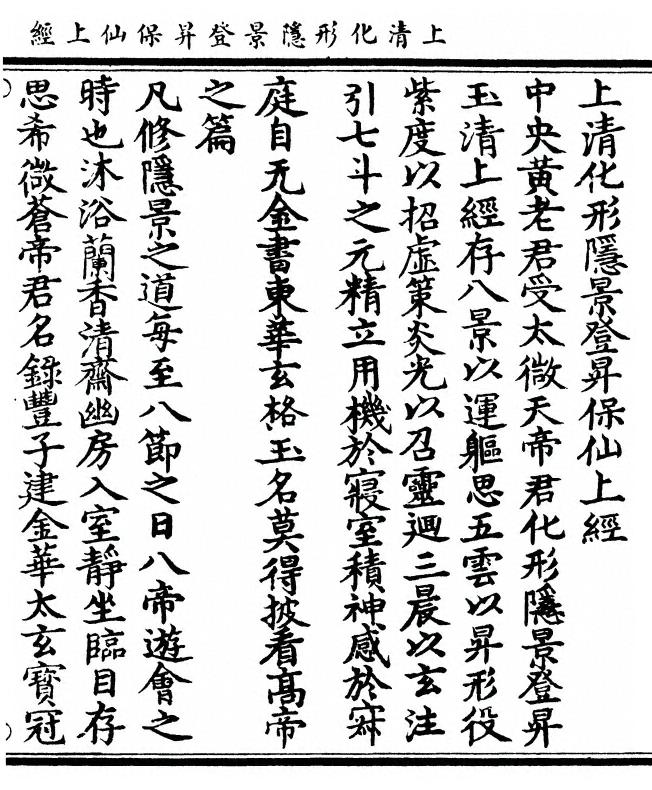 上清化形隱景登昇保仙上經
上清化形隱景登昇保仙上經
中央黃老君受太微天帝君化形隱景登昇
玉清上經存八景以運軀思五雲以昇形役
紫度以招虛策炎光以召靈迴三晨以玄注
引七斗之元精立用機於寢室積神感於寂
庭自无金書東華玄格玉名莫得披看高帝
之篇
凡修隱景之道每至八節之日八帝遊會之
時也沐浴蘭香清齋幽房入室靜坐臨目存
思希微蒼帝君名錄豐子建金華太玄寶冠